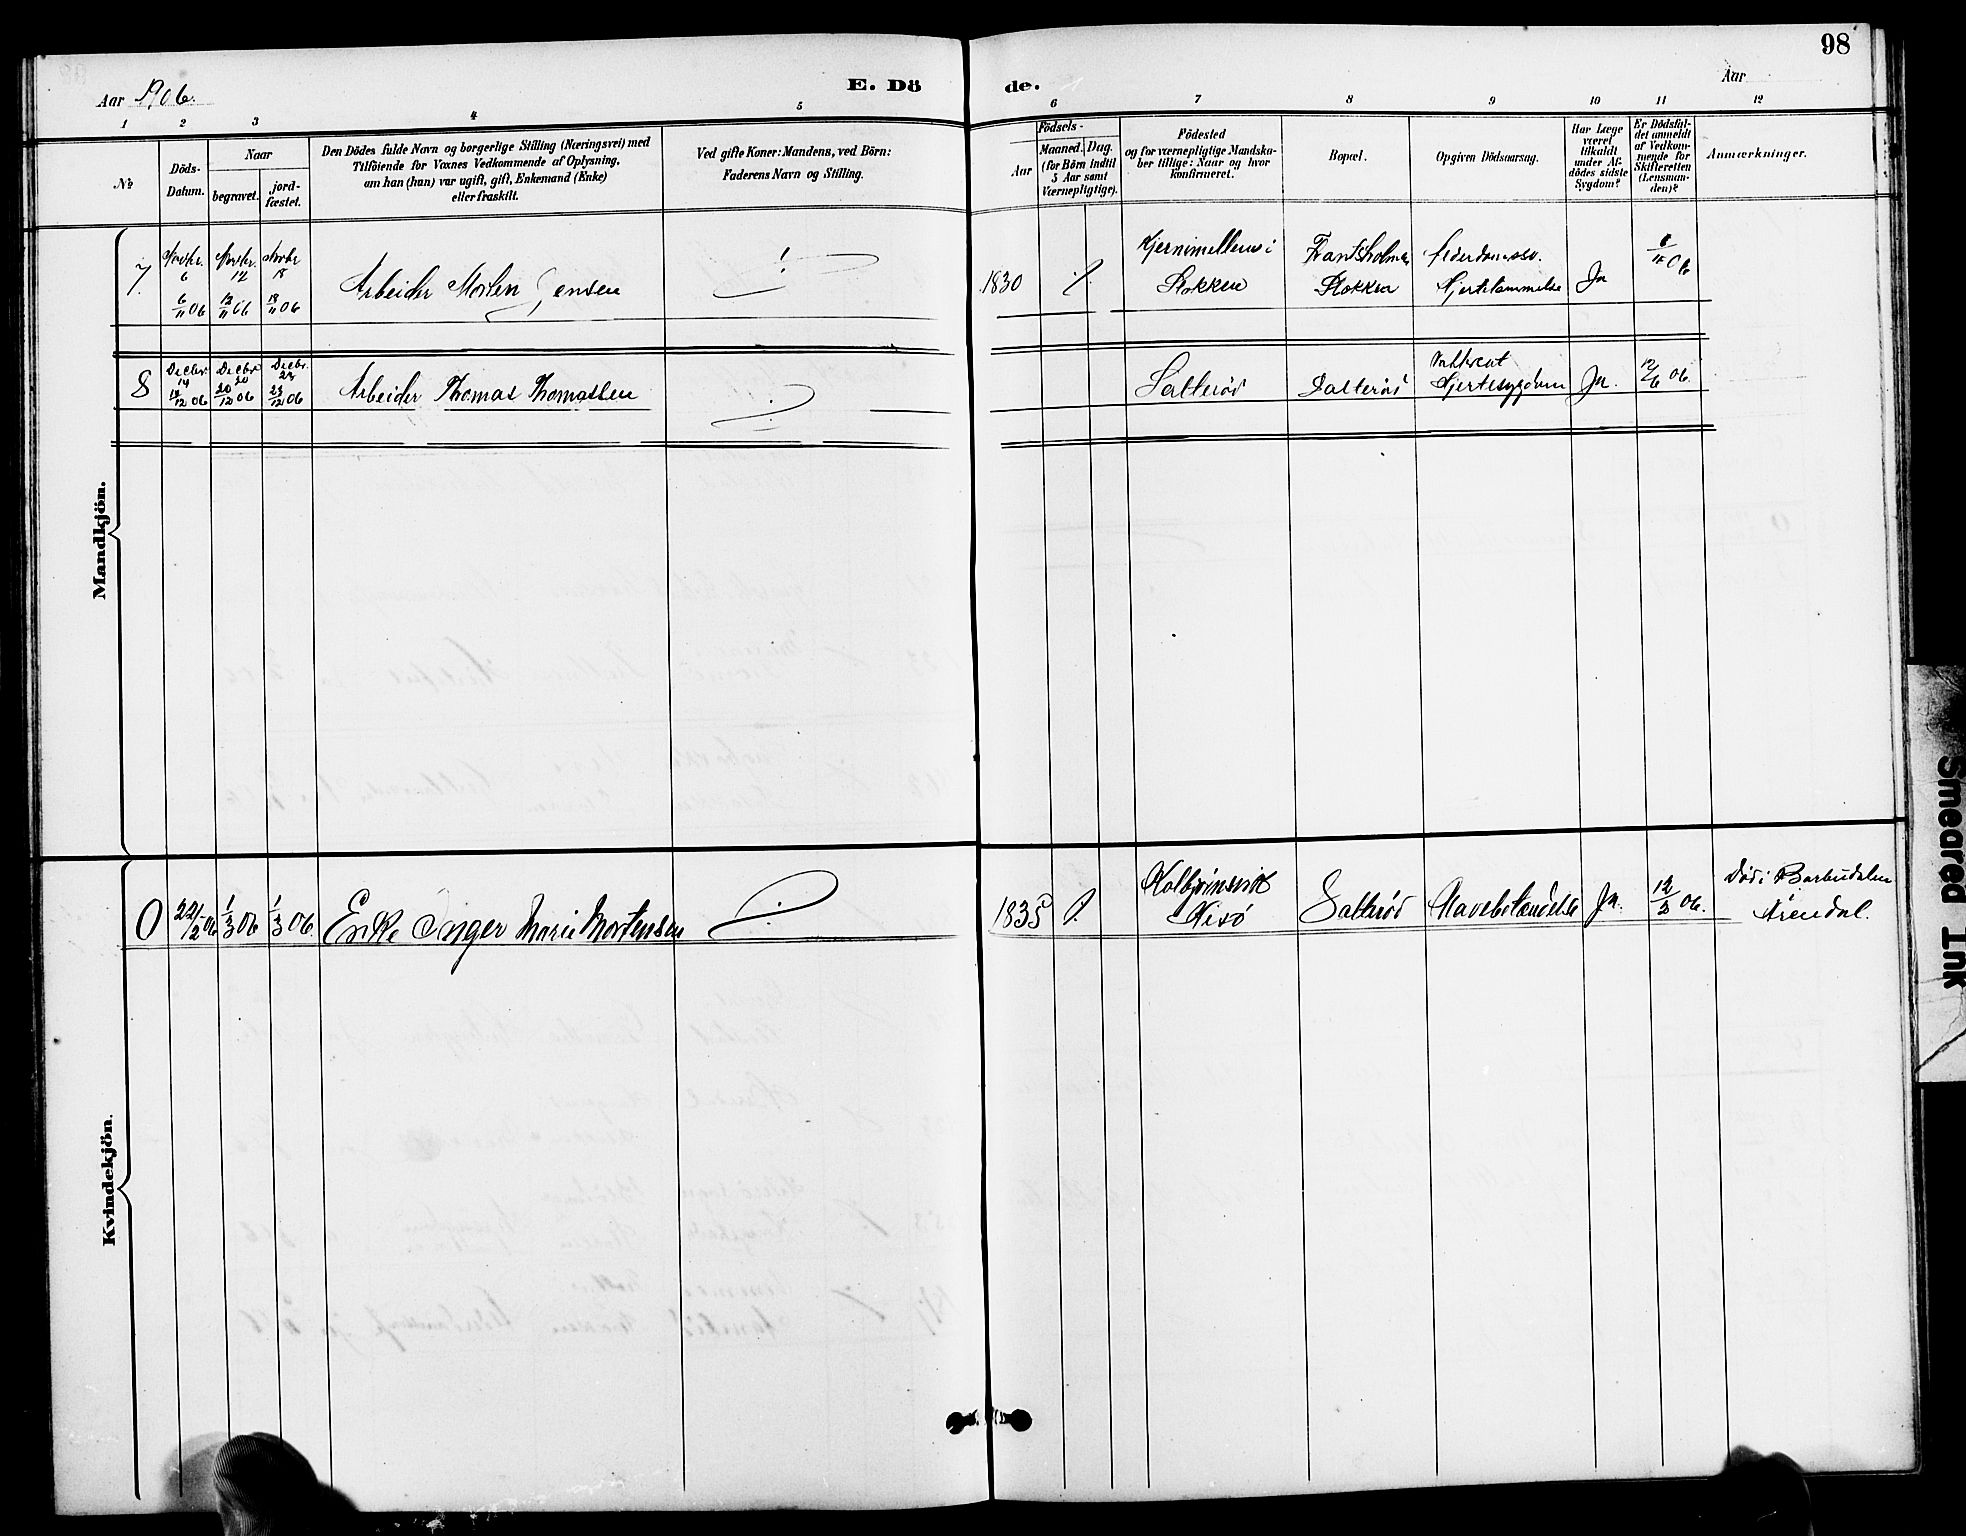 98
Aar 1906.
E. Dö
de.
Aar
1 2 3 4 5 6 7 8 9 10 11 12
No
Döds-
Datum.
Naar
begravet.
jord-
fæstet.
Den Dödes fulde Navn og borgerlige Stilling (Næringsvei) med
Tilföiende for Voxnes Vedkommende af Oplysning,
om han (hun) var ugift, gift, Enkemand (Enke)
eller fraskilt.
Ved gifte Koner: Mandens, ved Börn:
Faderens Navn og Stilling.
Aar
Födsels-
Maaned. Dag.
(for Börn indtil
5 Aar samt
Værnepligtige).
Födested
og for værnepligtige Mandska-
ber tillige: Naar og hvor
konfirmeret.
Bopæl.
Opgiven Dödsaarsag.
Har Læge
været
tilkaldt
under Af-
dödes sidste
Sygdom?
Er Dödsfal-
det anmeldt
af Vedkom-
mende for
Skifteretten
(Lensman-
den)?
Anmærkninger.
Mandkjön.
7
Novbr. 6
6/11 06
Novbr. 12
12/11 06
Novbr 18
18/11 06
Arbeider Morten Jensen
1830
Stokken
Stokken
Hjertelammelse
Ja
8
Decbr. 14
Decbr 20
20/12 06
Decbr. 23
23/12 06
Arbeider Thomas Thomassen
Salteröd
Salteröd
Hjertesygdom
Ja.
12/6 06.
Kvindekjön.
0
22/2 06
1/3 06
1/3 06.
Enke Inger Marie Mortensen
1835
Kolbjörnsvik
Hisö
Salteröd
Mavebetændelse
Ja.
12/3 06.
Död i Barbudalen
Arendal.
Smeared Ink